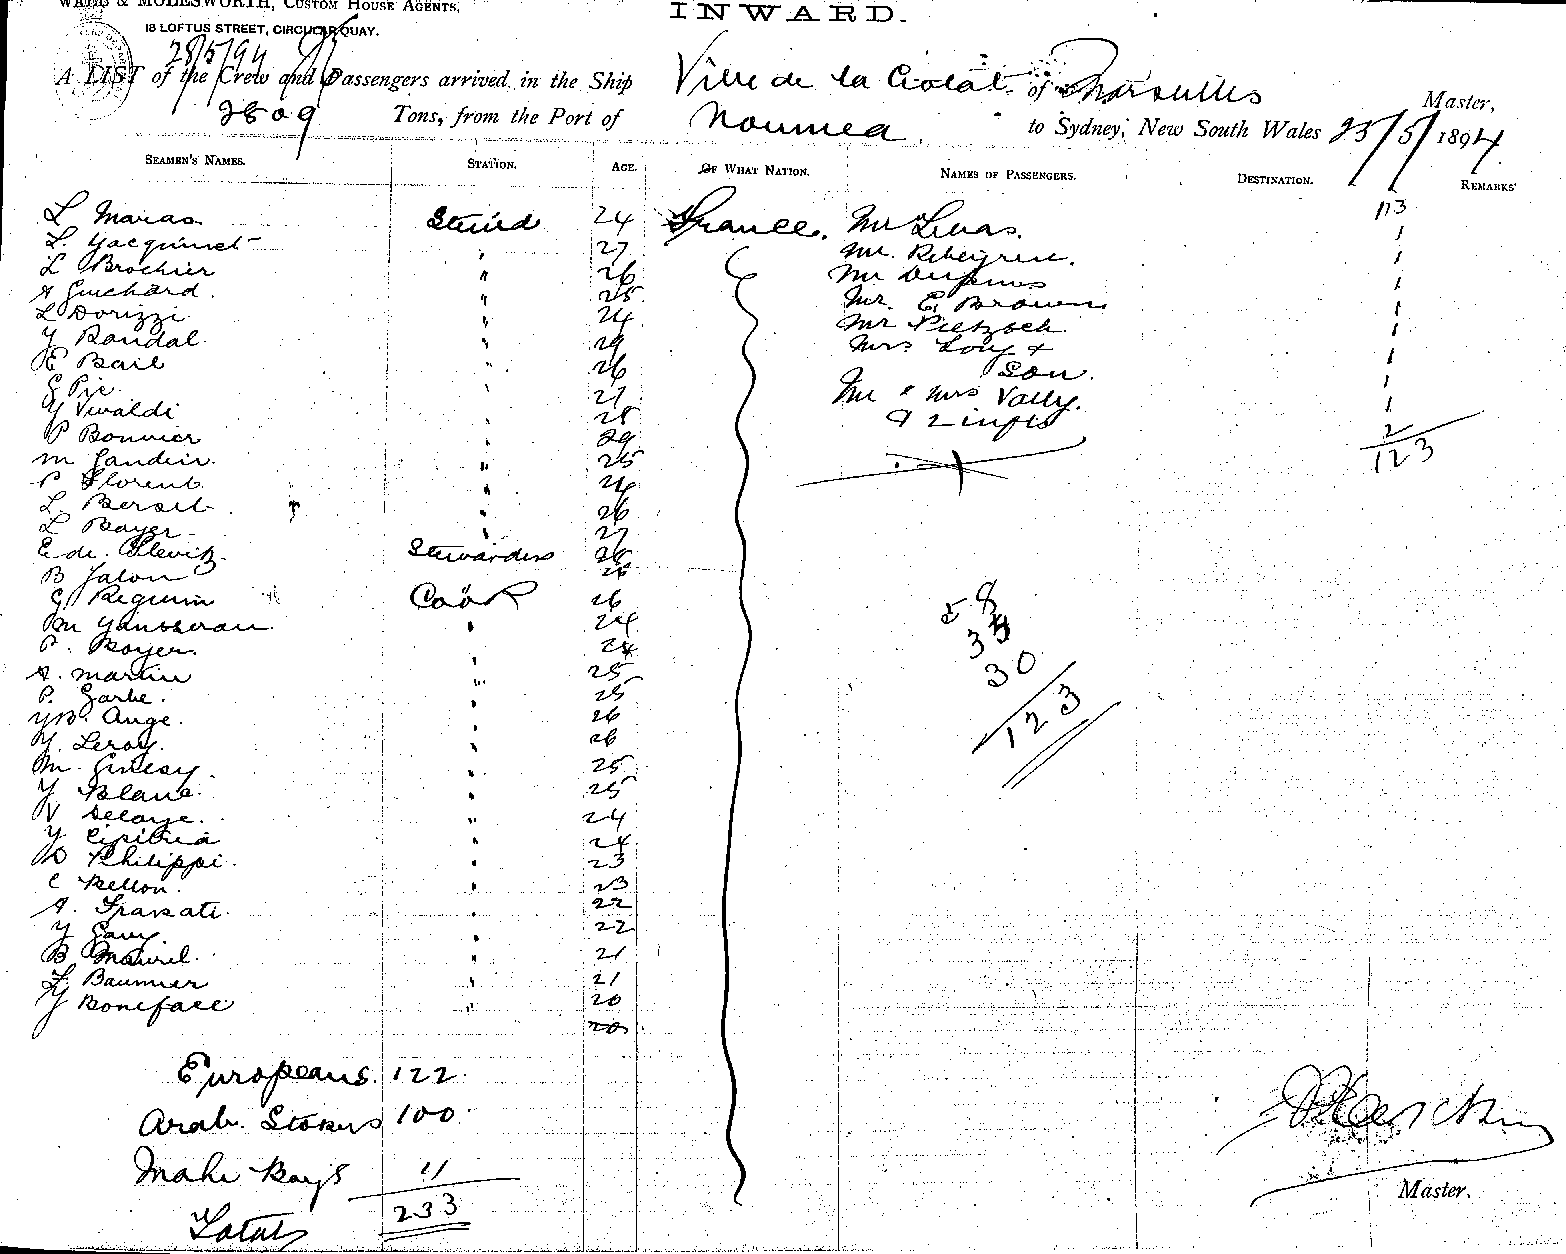 & MOLESWORTH, CUSTOM HOUSE AGENTS,
18 LOFTUS STREET, CIRCULAR QUAY.
INWARD.
28/5/94
A LIST of the Crew and Passengers arrived in the Ship Ville de la Ciotat of Marseilles Master,
2809 Tons, from the Port of Noumea to Sydney, New South Wales 25/5/1894
SEAMEN'S NAMES. STATION. AGE. OF WHAT NATION. NAMES OF PASSENGERS. DESTINATION. REMARKS
L Maras Steward 24 France. Mr Lucas. 113
L. Jacquinet " 27 Mr. 1
L Brochier " 26 Mr 1
A Guichard. " 25 Mr. E Brown 1
L Dorizzi " 24 Mr Pietzsch 1
Y Bondal " 29 Mrs Louy + 1
E Bail " 26 Son. 1
G Pic " 27 Mr & Mrs Vally. 1
Y Vivaldi " 28 & 2 infts 2
P Bonnier " 29 123
M Gaudin " 25
P Florent " 24
L. Berset " 26
L Bayer " 27
E de Stewardess 26
B Jalon 28
G Requin Cook 26
M " 24
P. Boyer " 24
A. Martin " 25
P. Garbe. " 25
Y.B. Ange. " 26
Y. Leroy. " 26
M. " 25
Y Blanc. " 25
V Delaye. " 24
Y " 24
D Philippi. " 23
C Bellon. " 23
A. Frassati. " 22
Y Gavy " 22
B Mauril. " 21
F. Baumier " 21
Y Boniface " 20
20
58
35
30
123
Europeans. 122
Arab. Stokers 100
Mahe Boys 11
Total 233
Master.